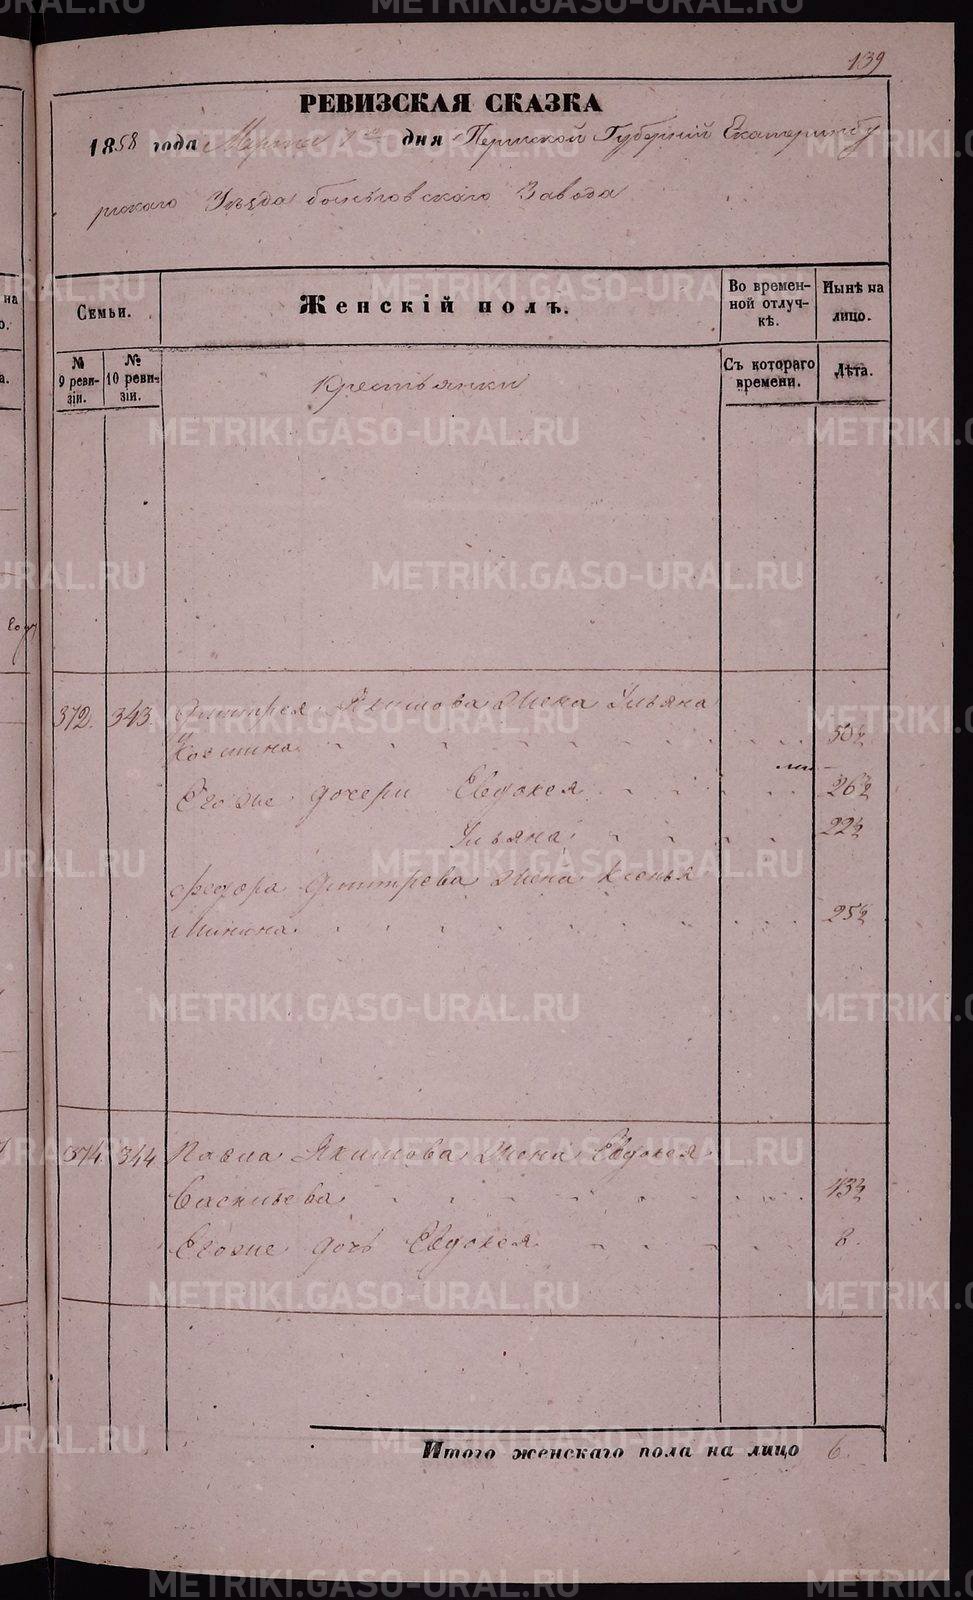 139
РЕВИЗСКАЯ СКАЗКА
1858 года Марта 1го дня Пермской Губерніи Екатеринбу
ргскаго Уѣзда Заводa
Семьи.
Женскій полъ.
Во времен-
ной отлуч-
кѣ.
Нынѣ на
лицо.
№
9 реви-
зіи.
№
10 реви-
зіи.
Крестьянки
Съ котораго
времени.
Лѣта.
372. 343. Дмитрея Якимова Жена Ульяна
Костина 50½
Его же дочери Евдокея 26½
Ульяна 22½
Федора Дмитрева Жена Ксенья
Минина 25½
374. 344 Павла Якимова Жена Евдокея
Васильева 43½
Его же дочь Евдокея 8.
Итого женскаго пола на лицо 6.
METRIKI.GASO-URAL.RU